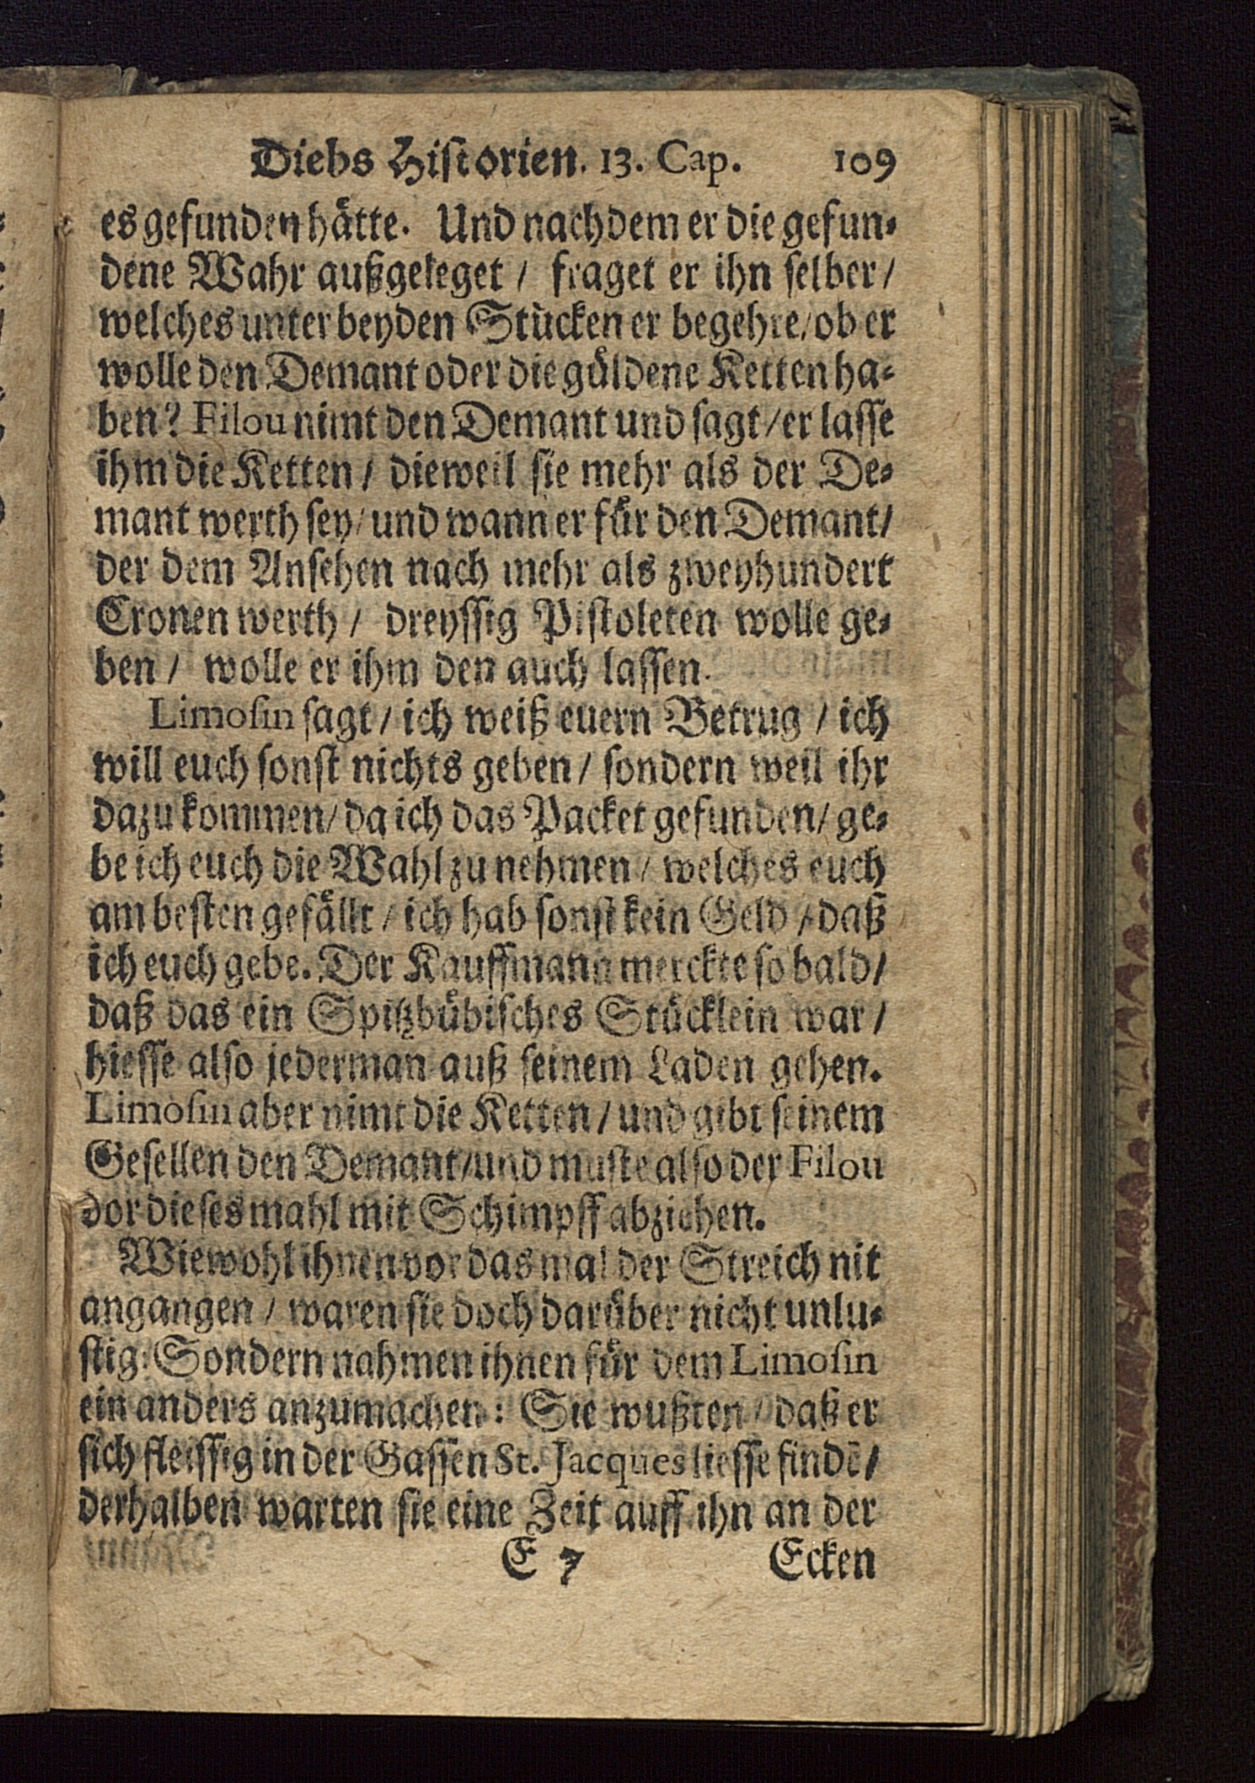 Diebs Historien. 13. Cap. 109
es gefunden hätte. Und nachdem er die gefun-
dene Wahr außgeleget / fraget er ihn selber /
welches unter beyden Stücken er begehre / ob er
wolle den Demant oder die güldene Ketten ha-
ben? Filou nimt den Demant und sagt / er lasse
ihm die Ketten / dieweil sie mehr als der De-
mant werth sey / und wann er für den Demant /
der dem Ansehen nach mehr als zweyhundert
Cronen werth / dreyssig Pistoleten wolle ge-
ben / wolle er ihm den auch lassen.
Limosin sagt / ich weiß euern Betrug / ich
will euch sonst nichts geben / sondern weil ihr
dazu kommen / da ich das Packet gefunden / ge-
be ich euch die Wahl zu nehmen / welches euch
am besten gefällt / ich hab sonst kein Geld / daß
ich euch gebe. Der Kauffmann merckte so bald /
daß das ein Spitzbübisches Stücklein war /
hiesse also jederman auß seinem Laden gehen.
Limosin aber nimt die Ketten / und gibt seinem
Gesellen den Demant / und muste also der Filou
dor dieses mahl mit Schimpff abziehen.
Wiewohl ihnen vor das mal der Streich nit
angangen / waren sie doch darüber nicht unlu-
stig: Sondern nahmen ihnen für dem Limosin
ein anders anzumachen: Sie wußten / daß er
sich fleissig in der Gassen St. Jacques liesse findẽ /
derhalben warten sie eine Zeit auff ihn an der
E 7 Ecken